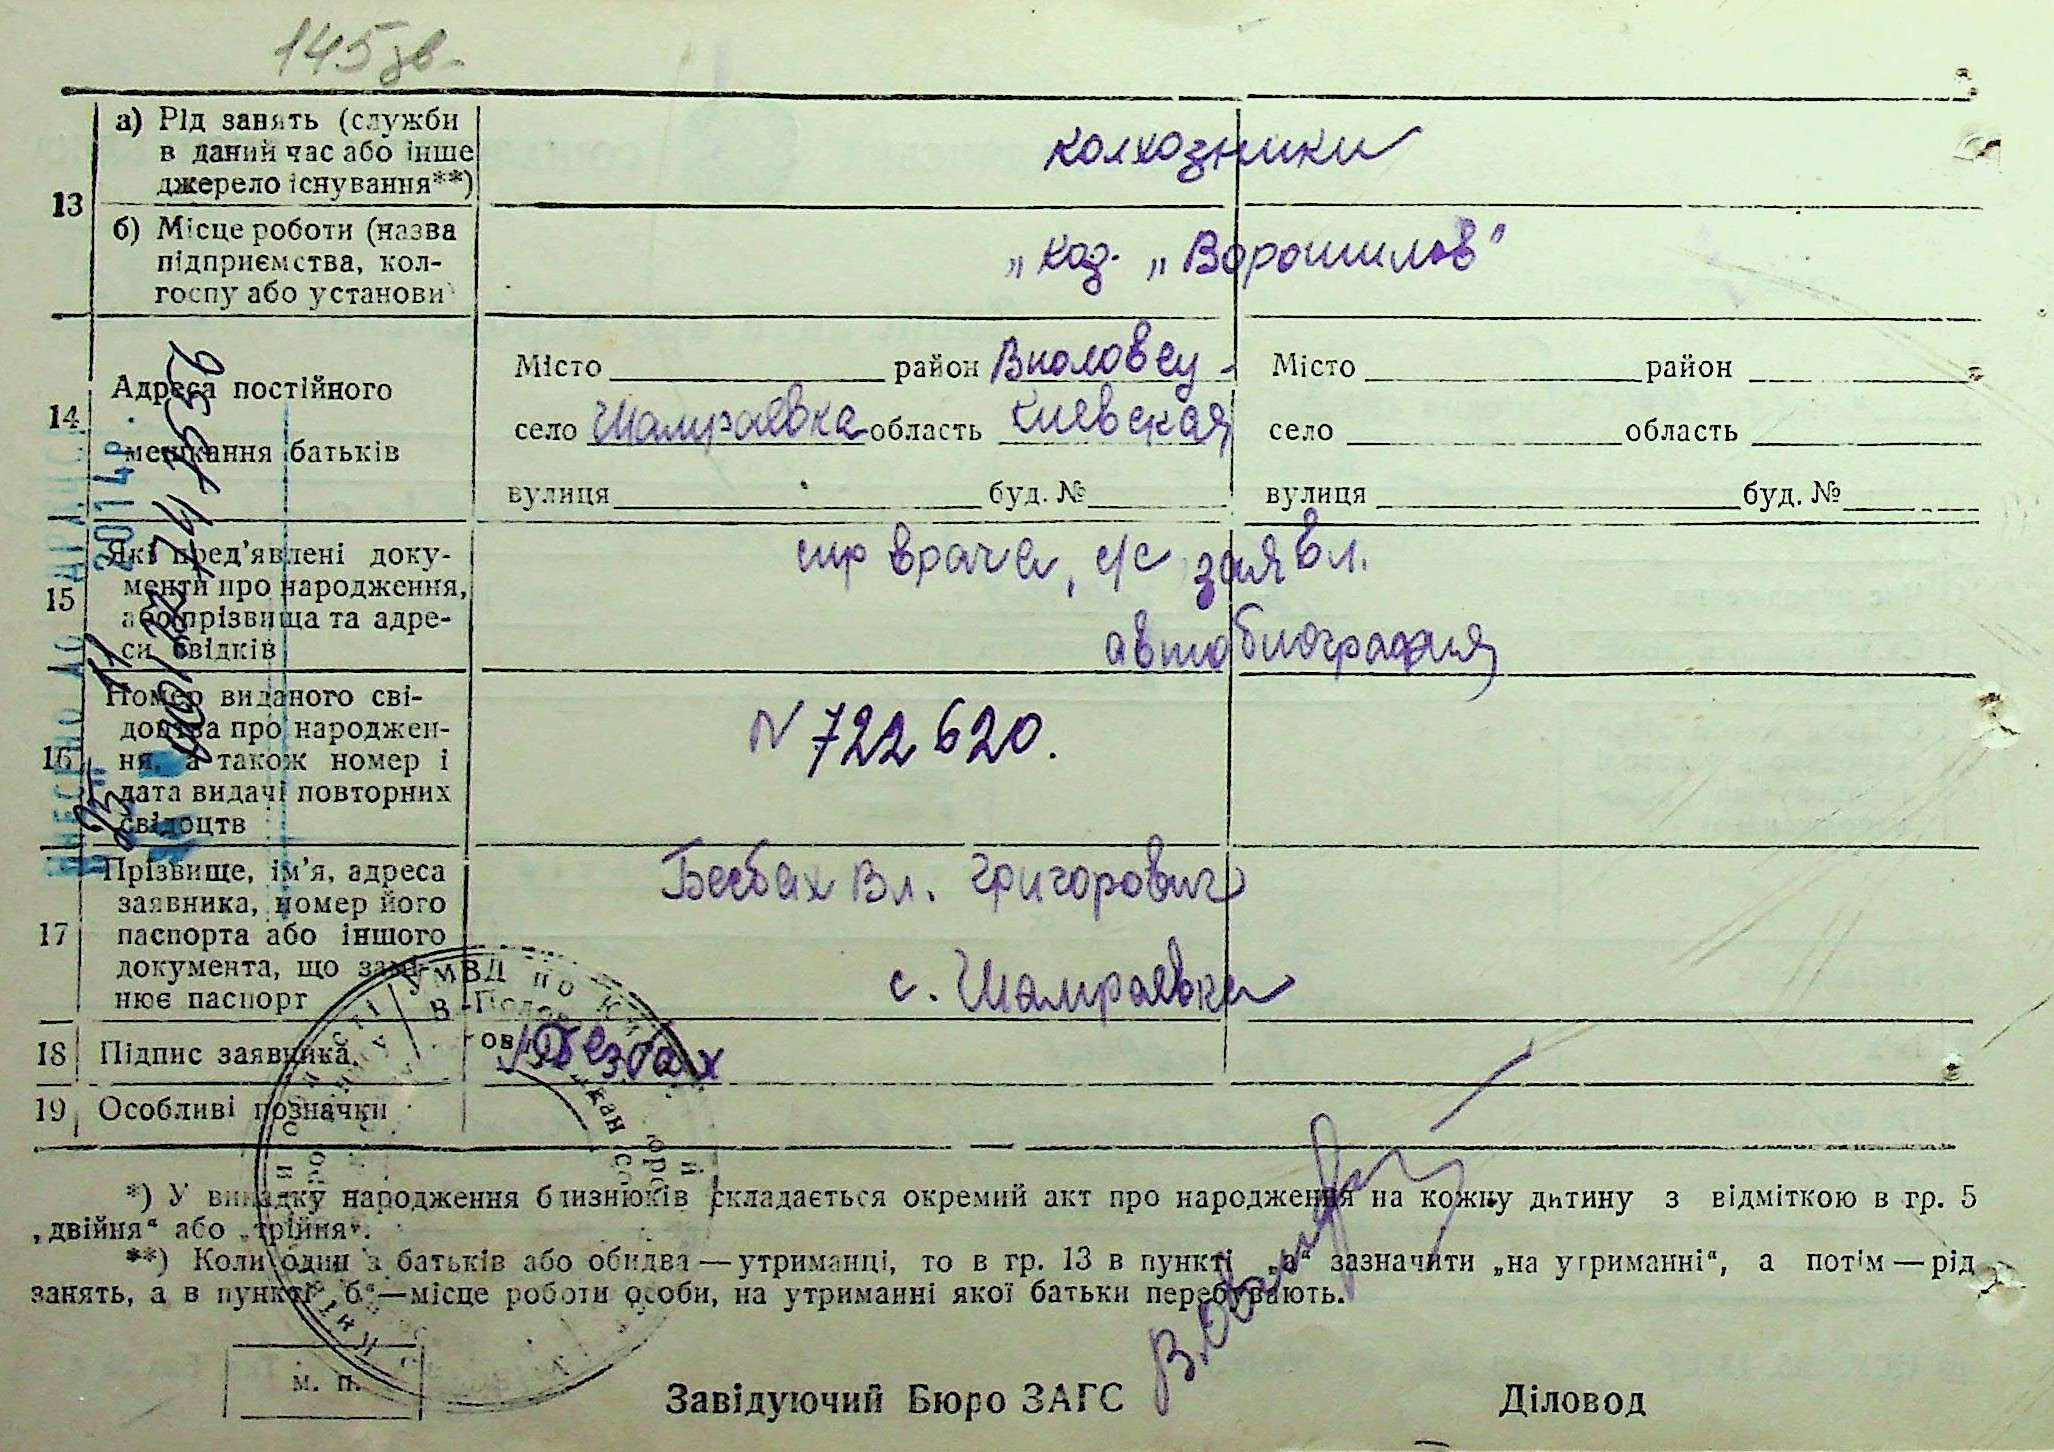 145зв.
13
а) Рід занять (служби
в даний час або інше
джерело існування**)
колхозники
б) Місце роботи (назва
підприємства, кол-
госпу або установи
„ кол. „ Ворошилов"
14
Адреса постійного
мешкання батьків
Місто район
село Шамраевка область Киевская
вулиця буд. №
Місто район
село область
вулиця буд. №
15
Які пред'явлені доку-
менти про народження,
або прізвища та адре-
си свідків
спр врача, с/с заявл.
автобиография
16
Номер виданого сві-
доцтва про народжен-
ня, а також номер і
дата видачі повторних
свідоцтв
N 722620.
17
Прізвище, ім'я, адреса
заявника, номер його
паспорта або іншого
документа, що замі-
нює паспорт
Бесбах Вл. Григорович
с. Шамраевка
18 Підпис заявника
Безбах
19 Особливі позначки
*) У випадку народження близнюків складається окремий акт про народження на кожну дитину з відміткою в гр. 5
„двійня“ або „трійня“.
**) Коли один з батьків або обидва — утриманці, то в гр. 13 в пункті „а“ зазначити „на утриманні“, а потім — рід
занять, а в пункті „б“ — місце роботи особи, на утриманні якої батьки перебувають.
м. п.
Завідуючий Бюро ЗАГС Діловод
ВНЕСЕНО ДО ДРАЦС
2014р.